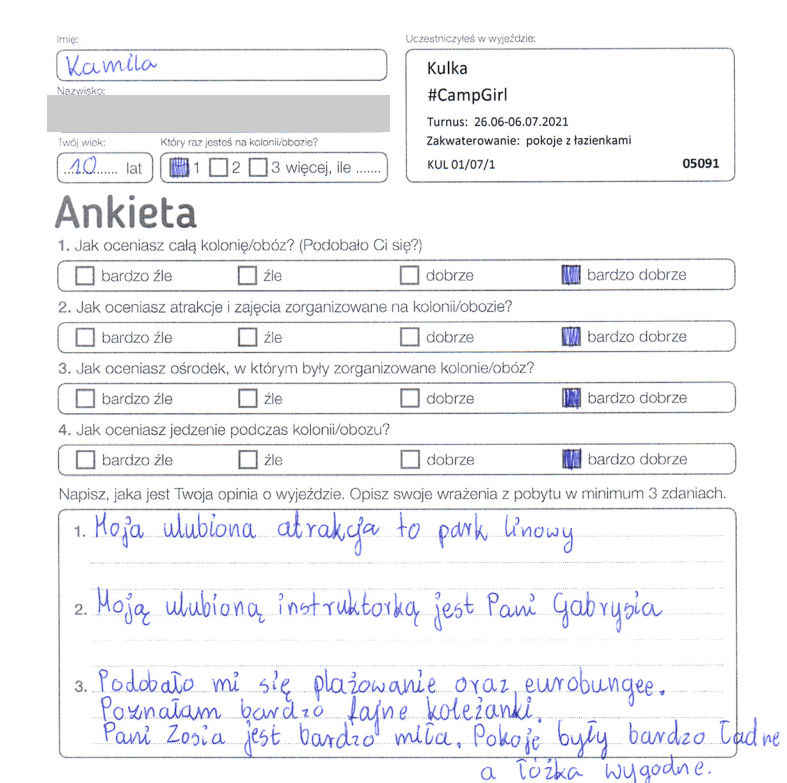 Imię:
Kamila
Nazwisko:
Twój wiek:
10 lat
Który raz jesteś na kolonii/obozie?
1 2 3 więcej, ile .......
Uczestniczyłeś w wyjeździe:
Kulka
#CampGirl
Turnus: 26.06-06.07.2021
Zakwaterowanie: pokoje z łazienkami
KUL 01/07/1 05091
Ankieta
1. Jak oceniasz całą kolonię/obóz? (Podobało Ci się?)
bardzo źle źle dobrze bardzo dobrze
2. Jak oceniasz atrakcje i zajęcia zorganizowane na kolonii/obozie?
bardzo źle źle dobrze bardzo dobrze
3. Jak oceniasz ośrodek, w którym były zorganizowane kolonie/obóz?
bardzo źle źle dobrze bardzo dobrze
4. Jak oceniasz jedzenie podczas kolonii/obozu?
bardzo źle źle dobrze bardzo dobrze
Napisz, jaka jest Twoja opinia o wyjeździe. Opisz swoje wrażenia z pobytu w minimum 3 zdaniach.
1. Moja ulubiona atrakcja to park linowy
2. Moją ulubioną instruktorką jest Pani Gabrysia
3. Podobało mi się plażowanie oraz eurobungee.
Poznałam bardzo fajne koleżanki.
Pani Zosia jest bardzo miła. Pokoje były bardzo ładne
a łóżka wygodne.